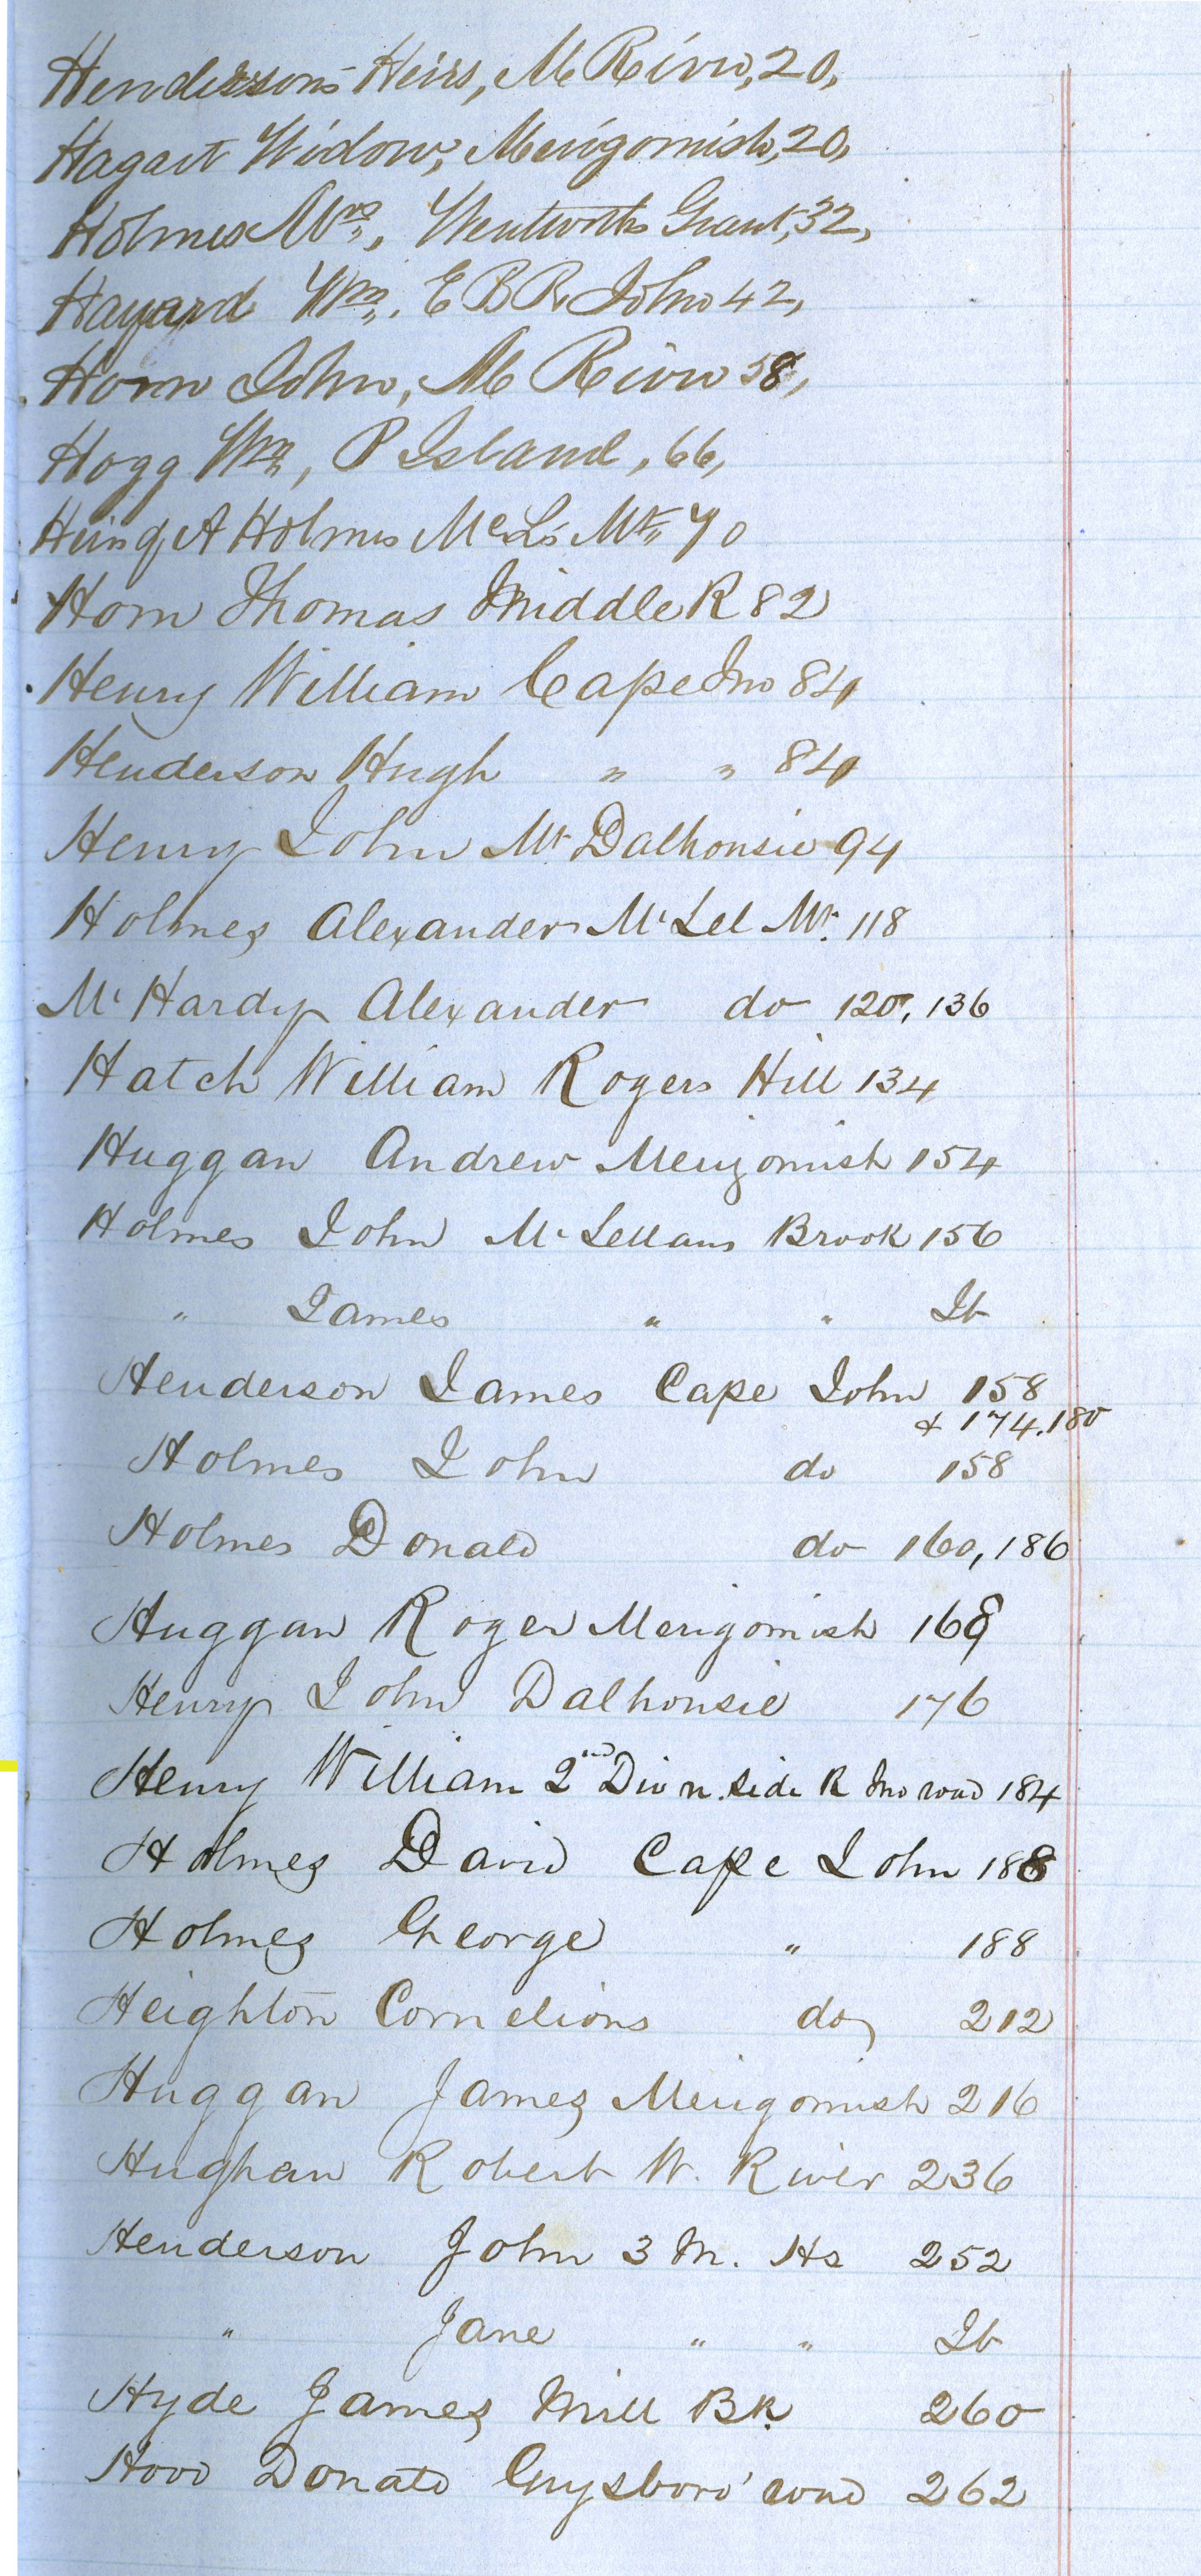 Hendersons Heirs, M River, 20,
Hagart Widow, Merigomish, 20,
Holmes Wm, Wentworth Grant, 32,
Hayard Wm, E B R John 42,
Horn John, M River 58,
Hogg Wm, P Island, 66,
Heirs of A Holmes McLs Mt, 70
Horn Thomas Middle R 82
Henry William Cape Jno 84
Henderson Hugh " " 84
Henry John Mt Dalhousie 94
Holmes Alexander McLel Mt. 118
Mc Hardy Alexander do 120, 136
Hatch William Rogers Hill 134
Huggan Andrew Merigomish 154
Holmes John McLellans Brook 156
" James " " Ib
Henderson James Cape John 158
& 174. 180
Holmes John do 158
Holmes Donald do 160, 186
Huggan Roger Merigomish 168
Henry John Dalhousie 176
Henry William 2nd Div n. side R Jno road 184
Holmes David Cape John 188
Holmes George " 188
Heighton Cornelious do 212
Huggan James Merigomish 216
Hughan Robert W. River 236
Henderson John 3 M. Hs 252
" Jane " " Ib
Hyde James Mill Bk 260
Hood Donald Guysboro' road 262